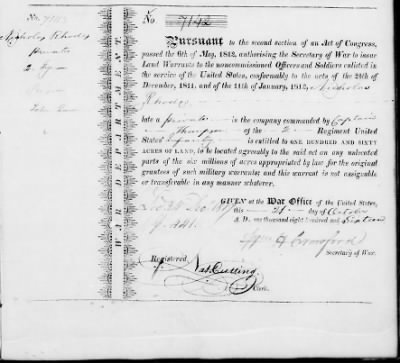 No. 7142
Nicholas Rhodes
Private
2
No. 7142
WAR DEPARTMENT.
Pursuant to the second section of an Act of Congress,
passed the 6th of May, 1812, authorising the Secretary of War to issue
Land Warrants to the noncommissioned Officers and Soldiers enlisted in
the service of the United States, conformably to the acts of the 24th of
December, 1811, and of the 11th of January, 1812, Nicholas
Rhodes
late a private in the company commanded by Captain
of the 2 Regiment United
States' Infantry is entitled to ONE HUNDRED AND SIXTY
ACRES OF LAND, to be located agreeably to the said act on any unlocated
parts of the six millions of acres appropriated by law for the original
grantees of such military warrants; and this warrant is not assignable
or transferable in any manner whatever.
GIVEN at the War Office of the United States,
this 21 day of October
A. D. one thousand eight hundred and Sixteen
Wm H Crawford
Secretary of War.
Registered,
Nas. Cutting
Clerk.